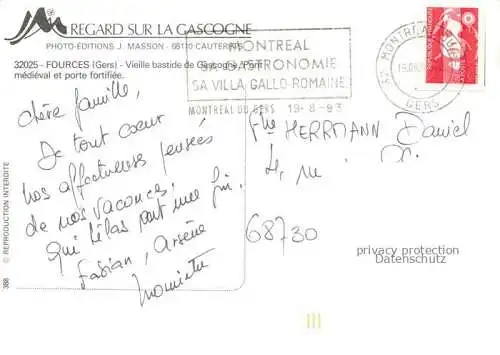 REGARD SUR LA GASCOGNE
PHOTO-ÉDITIONS J. MASSON - 65110 CAUTERETS
32025 - FOURCES (Gers) - Vieille bastide de Gascogne, Pont
médiéval et porte fortifiée.
MONTREAL
SA GASTRONOMIE
SA VILLA GALLO-ROMAINE
MONTREAL DU GERS 19-8-93
GERS
Chère famille,
De tout coeur
nos affectueuses pensées
de nos vacances,
qui hélas ont une fin.
Fabian, Arsène
Flle HERRMANN Daniel
68730
privacy protection
Datenschutz
© REPRODUCTION INTERDITE
388